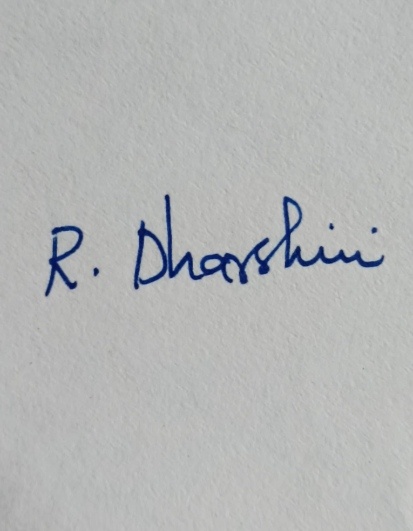 R. Dharshini